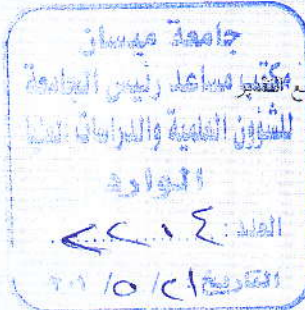 جامعة ميسان
مكتب مساعد رئيس الجامعة
ع التقدير
للشؤون العلمية والدراسات العليا
الوارد
العدد: ٢٢١٤
التاريخ ٢١/ ٥/ ٢٠١